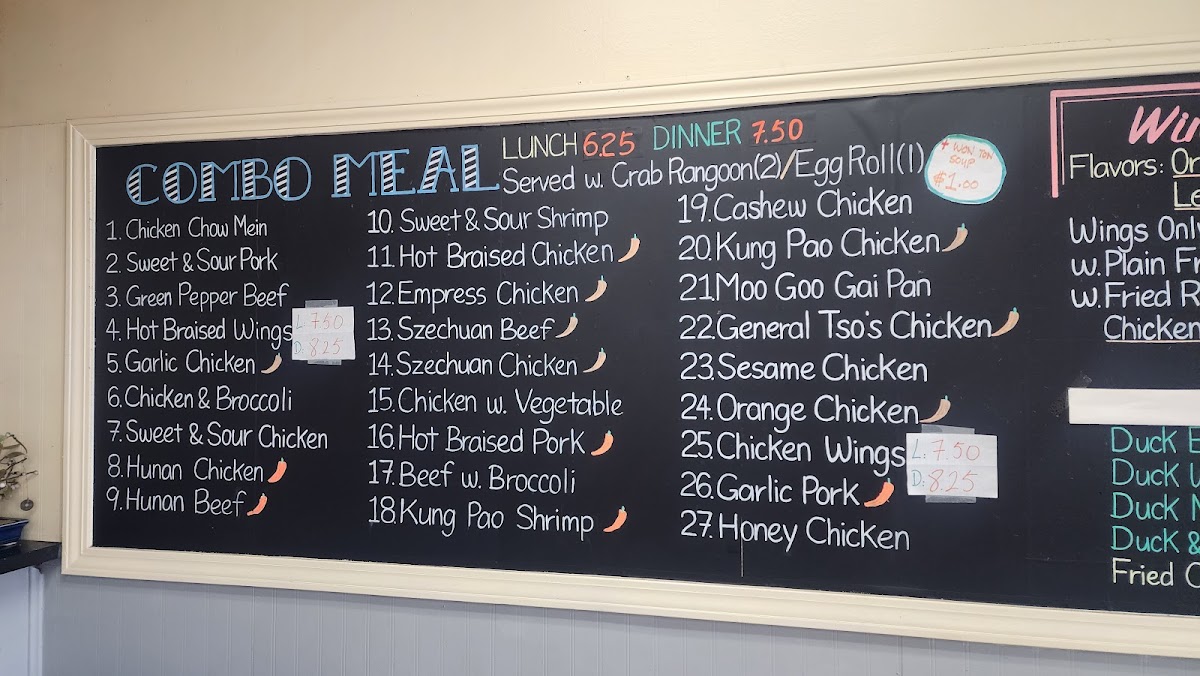 COMBO MEAL
LUNCH 6.25 DINNER 7.50
Served w. Crab Rangoon(2)/Egg Roll(1)
+ WON TON
SOUP
$1.00
1. Chicken Chow Mein
2. Sweet & Sour Pork
3. Green Pepper Beef
4. Hot Braised Wings
L: 7.50
D: 8.25
5. Garlic Chicken
6. Chicken & Broccoli
7. Sweet & Sour Chicken
8. Hunan Chicken
9. Hunan Beef
10. Sweet & Sour Shrimp
11. Hot Braised Chicken
12. Empress Chicken
13. Szechuan Beef
14. Szechuan Chicken
15. Chicken w. Vegetable
16. Hot Braised Pork
17. Beef w. Broccoli
18. Kung Pao Shrimp
19. Cashew Chicken
20. Kung Pao Chicken
21. Moo Goo Gai Pan
22. General Tso's Chicken
23. Sesame Chicken
24. Orange Chicken
25. Chicken Wings
L: 7.50
D: 8.25
26. Garlic Pork
27. Honey Chicken
Flavors:
Wings
w. Plain
w. Fried
Chicken
Duck
Duck
Duck
Duck &
Fried